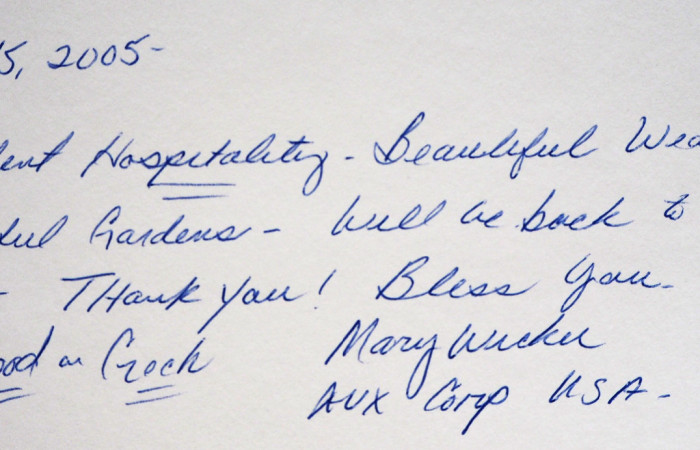 5, 2005-
lent Hospitality - Beautiful Wea
ful Gardens - Will be back to
- Thank you! Bless you.
ood in Czech Mary
AVX Corp USA -